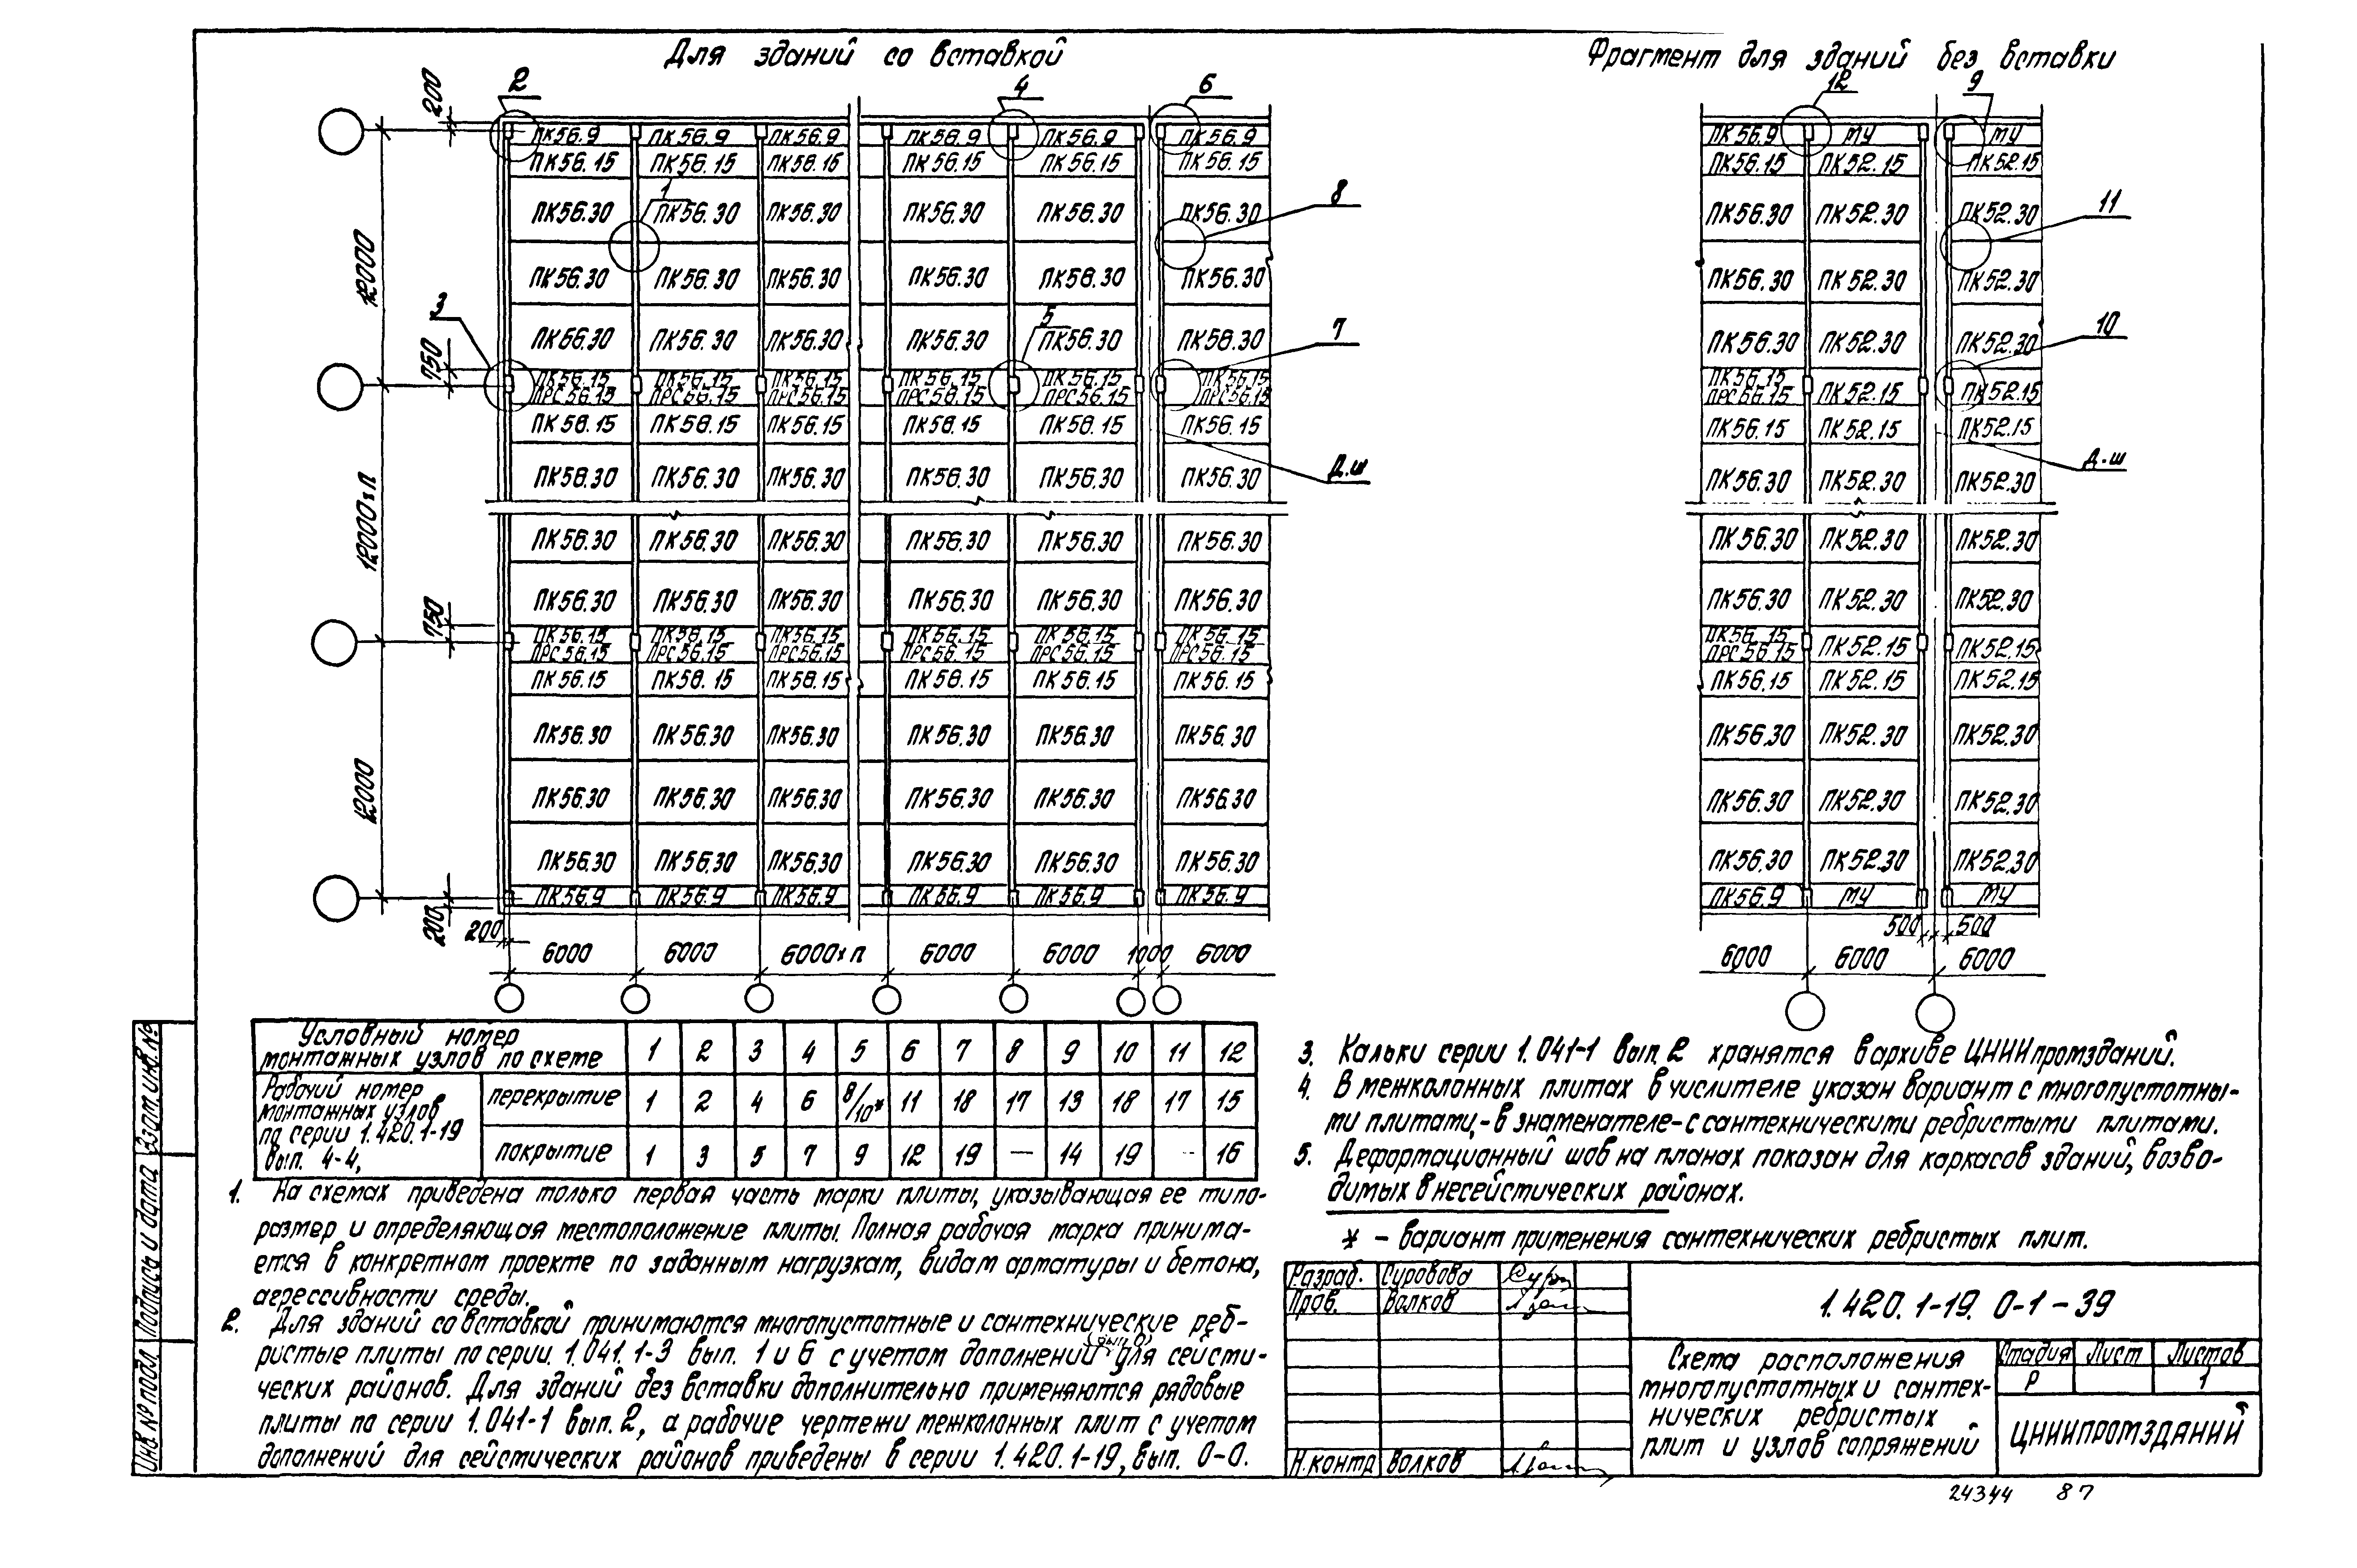 Для зданий со вставкой
Фрагмент для зданий без вставки
2 4 6 12 9
200
ПК56.9 ПК56.9 ПК56.9 ПК56.9 ПК56.9 ПК56.9 ПК56.9 МУ МУ
ПК56.15 ПК56.15 ПК56.15 ПК56.15 ПК56.15 ПК56.15 ПК56.15 ПК52.15 ПК52.15
1 8 11
ПК56.30 ПК56.30 ПК56.30 ПК56.30 ПК56.30 ПК56.30 ПК56.30 ПК52.30 ПК52.30
12000
ПК56.30 ПК56.30 ПК56.30 ПК56.30 ПК56.30 ПК56.30 ПК56.30 ПК52.30 ПК52.30
3 5 7 10
ПК56.30 ПК56.30 ПК56.30 ПК56.30 ПК56.30 ПК56.30 ПК56.30 ПК52.30 ПК52.30
750
ПК56.15 ПК56.15 ПК56.15 ПК56.15 ПК56.15 ПК56.15 ПК56.15 ПК52.15 ПК52.15
ПРС56.15 ПРС56.15 ПРС56.15 ПРС56.15 ПРС56.15 ПРС56.15 ПРС56.15
ПК56.15 ПК56.15 ПК56.15 ПК56.15 ПК56.15 ПК56.15 ПК56.15 ПК52.15 ПК52.15
Д.ш Д.ш
ПК56.30 ПК56.30 ПК56.30 ПК56.30 ПК56.30 ПК56.30 ПК56.30 ПК52.30 ПК52.30
12000×п
ПК56.30 ПК56.30 ПК56.30 ПК56.30 ПК56.30 ПК56.30 ПК56.30 ПК52.30 ПК52.30
ПК56.30 ПК56.30 ПК56.30 ПК56.30 ПК56.30 ПК56.30 ПК56.30 ПК52.30 ПК52.30
750
ПК56.15 ПК56.15 ПК56.15 ПК56.15 ПК56.15 ПК56.15 ПК56.15 ПК52.15 ПК52.15
ПРС56.15 ПРС56.15 ПРС56.15 ПРС56.15 ПРС56.15 ПРС56.15 ПРС56.15
ПК56.15 ПК56.15 ПК56.15 ПК56.15 ПК56.15 ПК56.15 ПК56.15 ПК52.15 ПК52.15
ПК56.30 ПК56.30 ПК56.30 ПК56.30 ПК56.30 ПК56.30 ПК56.30 ПК52.30 ПК52.30
12000
ПК56.30 ПК56.30 ПК56.30 ПК56.30 ПК56.30 ПК56.30 ПК56.30 ПК52.30 ПК52.30
ПК56.30 ПК56.30 ПК56.30 ПК56.30 ПК56.30 ПК56.30 ПК56.30 ПК52.30 ПК52.30
ПК56.9 ПК56.9 ПК56.9 ПК56.9 ПК56.9 ПК56.9 ПК56.9 МУ МУ
200 200 500 500
6000 6000 6000×п 6000 6000 1000 6000 6000 6000 6000
Условный номер
монтажных узлов по схеме 1 2 3 4 5 6 7 8 9 10 11 12
Рабочий номер
монтажных узлов
по серии 1.420.1-19
вып. 4-4,
перекрытие 1 2 4 6 8/10* 11 18 17 13 18 17 15
покрытие 1 3 5 7 9 12 19 — 14 19 -- 16
1. На схемах приведена только первая часть марки плиты, указывающая ее типо-
размер и определяющая местоположение плиты. Полная рабочая марка принима-
ется в конкретном проекте по заданным нагрузкам, видам арматуры и бетона,
агрессивности среды.
2. Для зданий со вставкой принимаются многопустотные и сантехнические реб-
ристые плиты по серии 1.041.1-3 вып. 1 и 6 с учетом дополнений (вып.0) для сейсми-
ческих районов. Для зданий без вставки дополнительно применяются рядовые
плиты по серии 1.041-1 вып. 2, а рабочие чертежи межколонных плит с учетом
дополнений для сейсмических районов приведены в серии 1.420.1-19, вып. 0-0.
3. Кальки серии 1.041-1 вып. 2 хранятся в архиве ЦНИИпромзданий.
4. В межколонных плитах в числителе указан вариант с многопустотны-
ми плитами,-в знаменателе-с сантехническими ребристыми плитами.
5. Деформационный шов на планах показан для каркасов зданий, возво-
димых в несейсмических районах.
* – вариант применения сантехнических ребристых плит.
Разраб. Суровова
Пров. Волков
Н.контр Волков
1.420.1-19. 0-1-39
Схема расположения
многопустотных и сантех-
нических ребристых
плит и узлов сопряжений
Стадия Лист Листов
Р 1
ЦНИИПРОМЗДАНИЙ
Инв.№ подл. Подпись и дата Взам.инв.№
24344 87